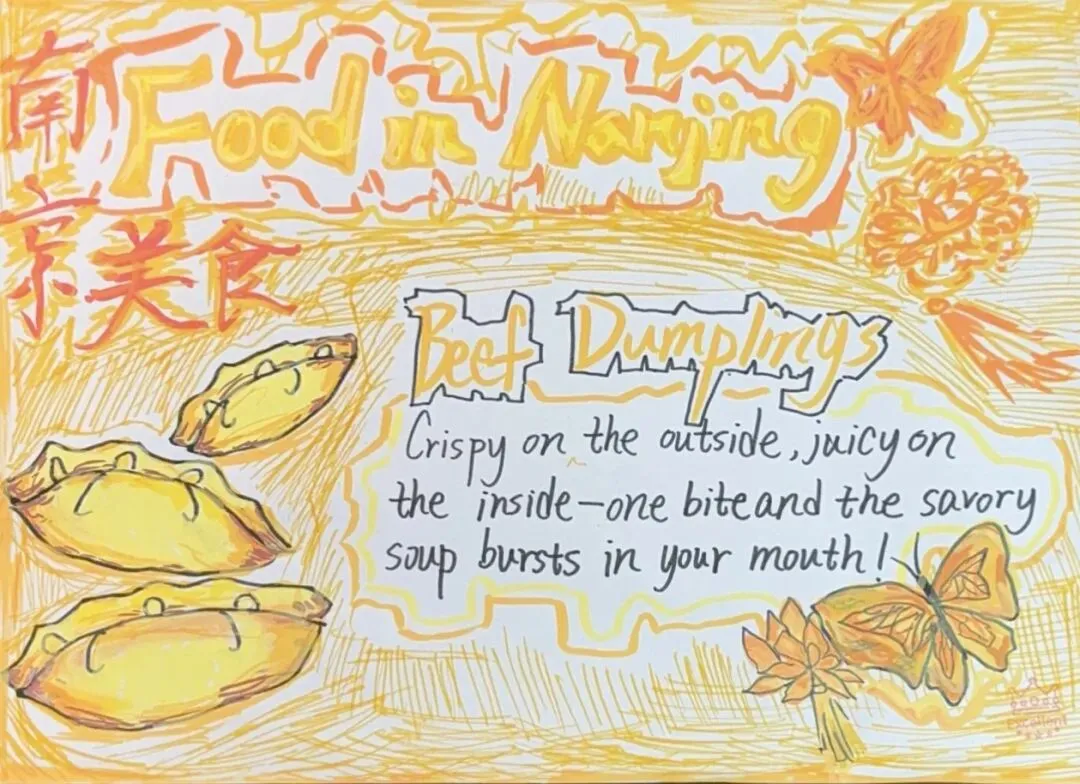 Food in Nanjing
南京美食
Beef Dumplings
Crispy on the outside, juicy on
the inside—one bite and the savory
soup bursts in your mouth!
Excellent